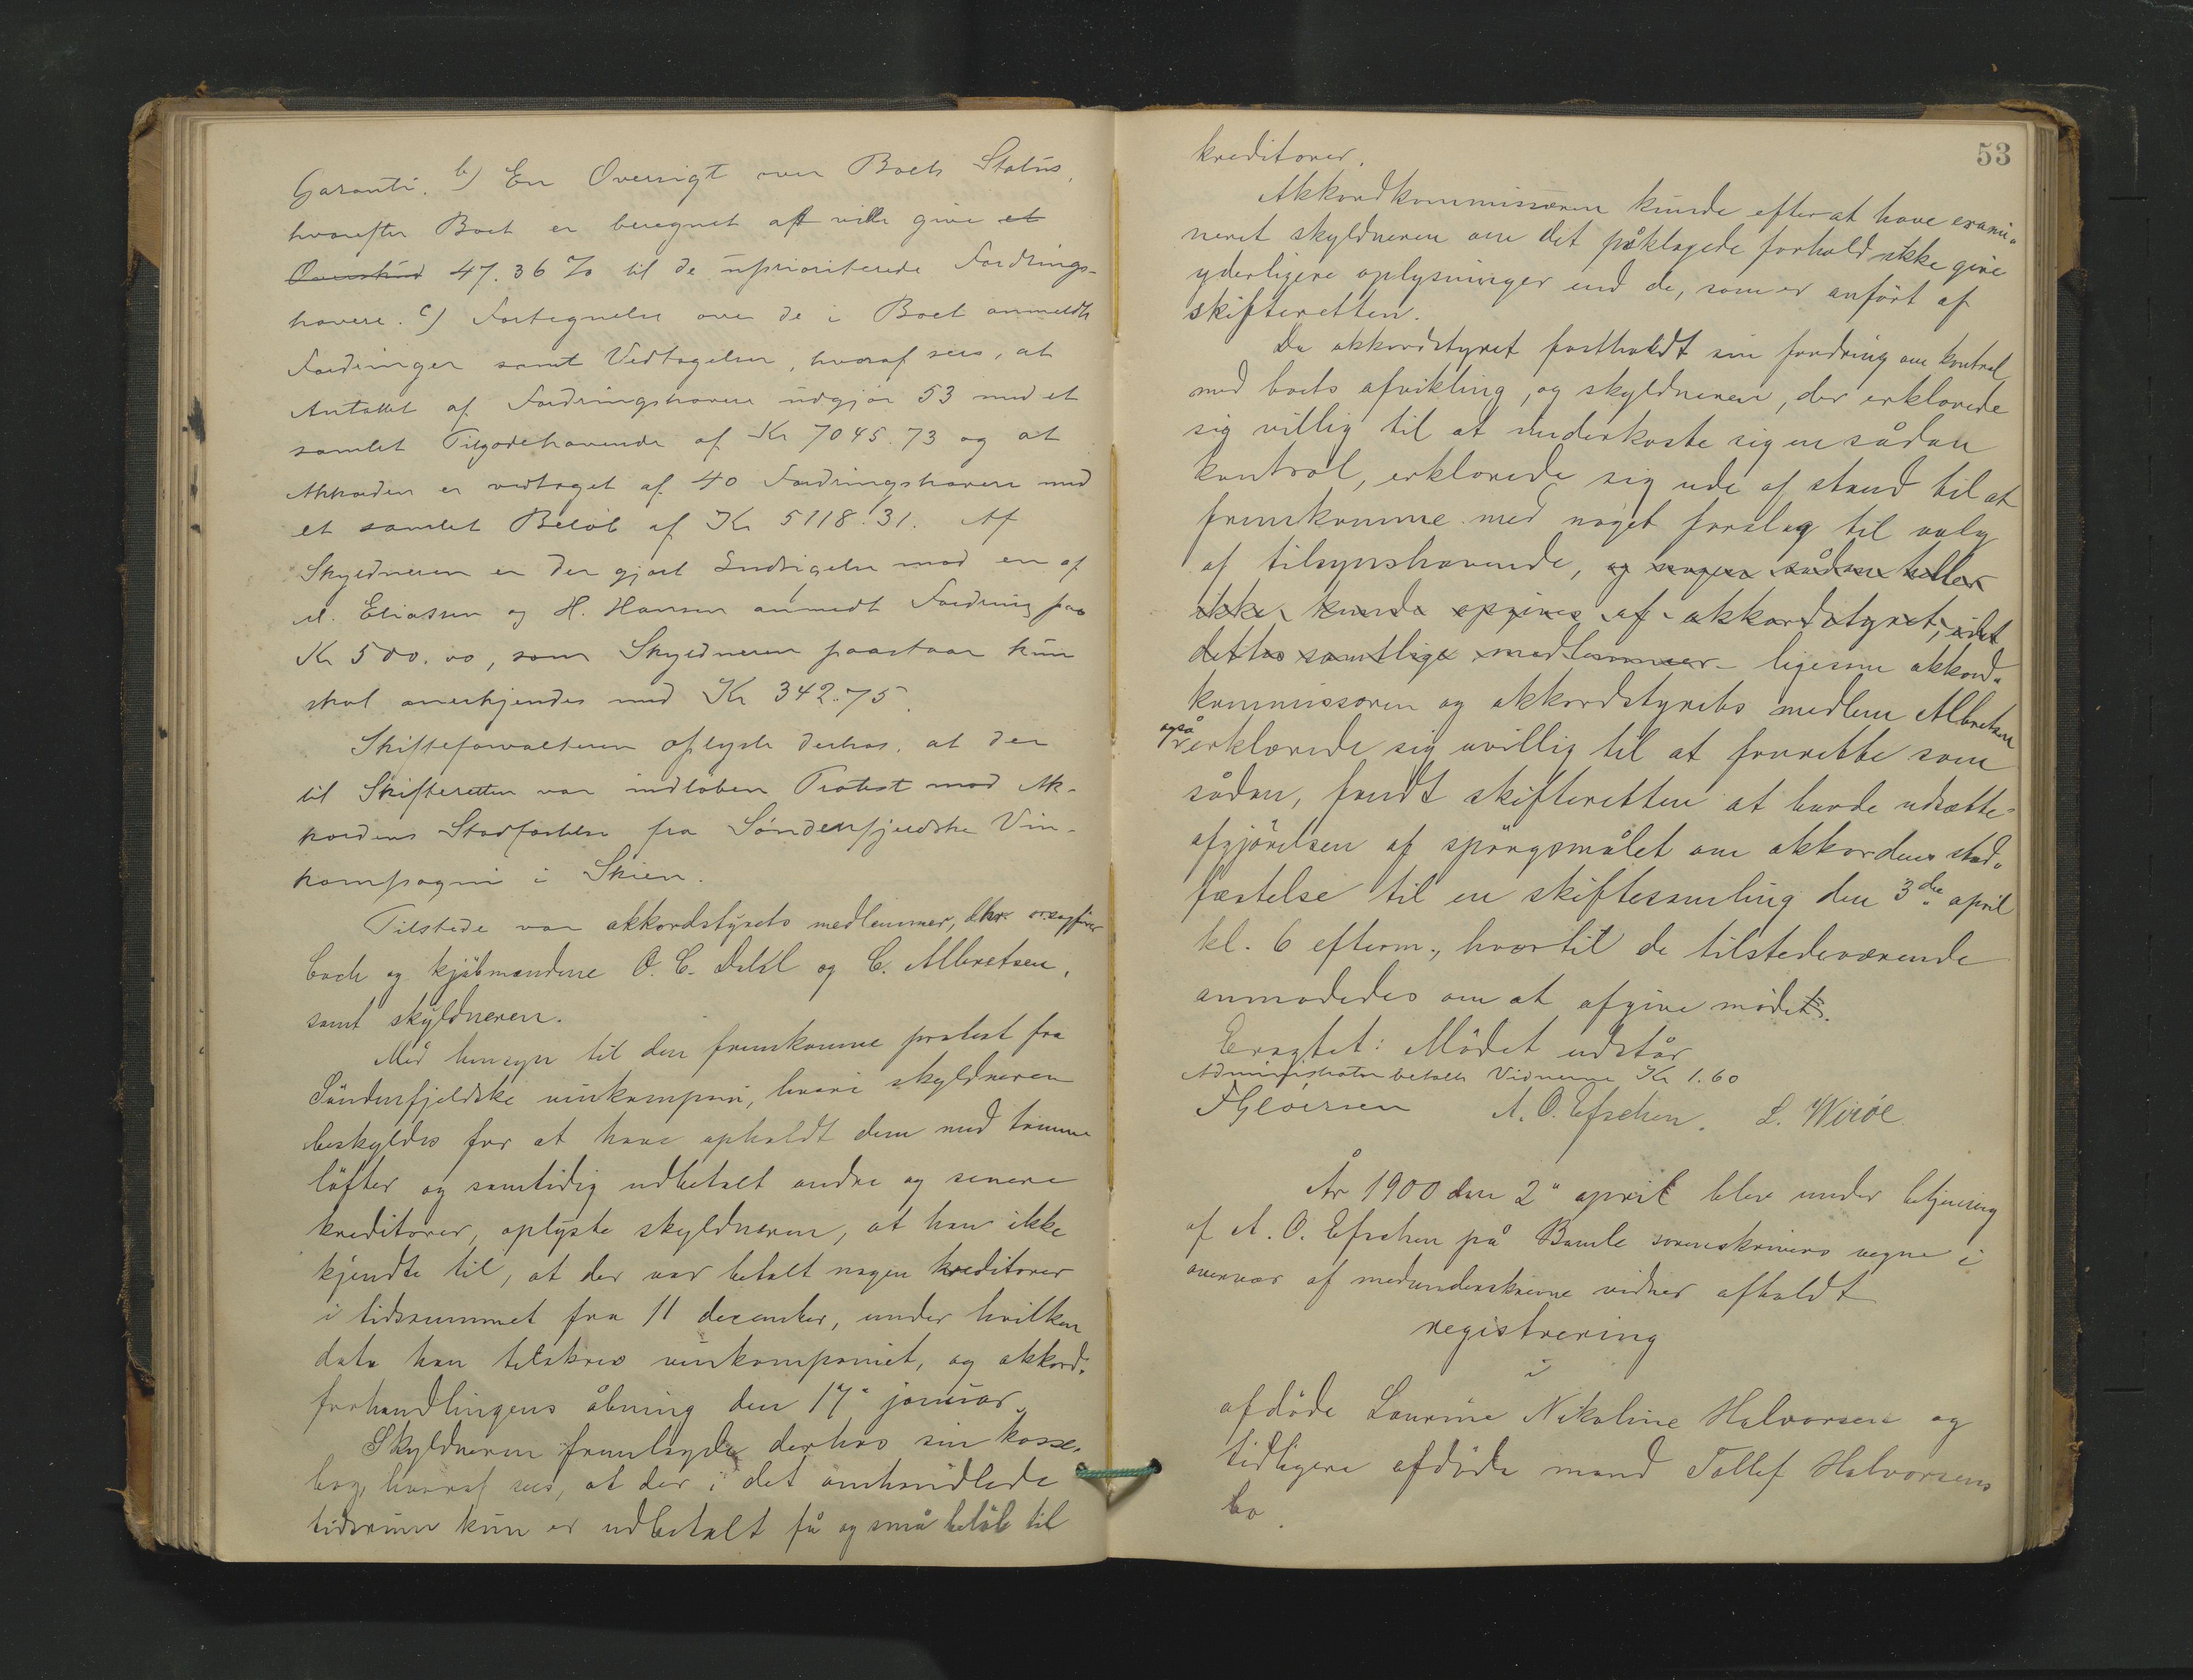 Garanti. b) En Oversigt over Boets Status,
hvorefter Boet er beregnet at ville give et
Overskud 47.36 % til de uprioriterede Fordrings-
havere. c) Fortegnelse over de i Boet anmeldte
Fordringer samt Vedtagelser, hvoraf sees, at
Antallet af Fordringshavere udgjør 53 med et
samlet Tilgodehavende af Kr 7045.73 og at
Akkorden er vedtaget af 40 Fordringshavere med
et samlet Beløb af Kr 5118.31. Af
Skyldneren er der gjort Indsigelse mod en af
Eliassen og H. Hansen anmeldt Fordring paa
Kr 500.00, som Skyldneren paastaar kun
skal anerkjendes med Kr 342.75.
Skifteforvalteren oplyste derhos, at der
til Skifteretten var indløben Protest mod Ak-
kordens Stadfæstelse fra Søndenfjeldske Vin-
kompagni i Skien.
Tilstede var akkordstyrets medlemmer, hr. o.r.sagfører
Coch og kjøbmændene O. C. Dahl og C. Albretsen,
samt skyldneren.
Med hensyn til den fremkomne protest fra
Söndenfjeldske vinkompani, hvori skyldneren
beskyldes for at have opholdt dem med tomme
löfter og samtidig udbetalt andre og senere
kreditorer, oplyste skyldneren, at han ikke
kjendte til, at der var betalt nogen kreditorer
i tidsrummet fra 11 december, under hvilken
dato han tilskrev vinkompaniet, og akkord-
forhandlingens åbning den 17" januar.
Skyldneren fremlagde derhos sin kasse-
bog, hvoraf sees, at der i det omhandlede
tidsrum kun er udbetalt få og små beløb til
53
kreditorer.
Akkordkommissæren kunde efter at have exami-
neret skyldneren om det påklagede forhold ikke give
yderligere oplysninger end de, som er anført af
skifteretten.
Da akkordstyret fastholdt sin fordring om kontrol
med boets afvikling, og skyldneren, der erklærede
sig villig til at underkaste sig en sådan
kontrol, erklærede sig ude af stand til at
fremkomme med noget forslag til valg
af tilsynshavende, og nogen sådan heller
ikke kunde opgives af akkordstyret, idet
dettes samtlige medlemmer ligesom akkord-
kommissæren og akkordstyrets medlem Albretsen
også erklærede sig uvillig til at forrette som
sådan, fandt skifteretten at burde udsætte
afgjörelsen af spörgsmålet om akkordens stad-
fæstelse til en skiftesamling den 3die april
kl. 6 efterm., hvortil de tilstedeværende
anmodedes om at afgive møde.
Eragtet: Mödet udstår
Administrator betalte Vidnerne Kr 1.60
FGløersen A. O. Efschen. L. Wiröe
År 1900 den 2" april blev under betjening
af A. O. Efschen på Bamle sorenskrivers vegne i
overvær af medunderskrevne vidner afholdt
registrering
i
afdöde Laurine Nikoline Halvorsen og
tidligere afdöde mand Tollef Halvorsens
bo.